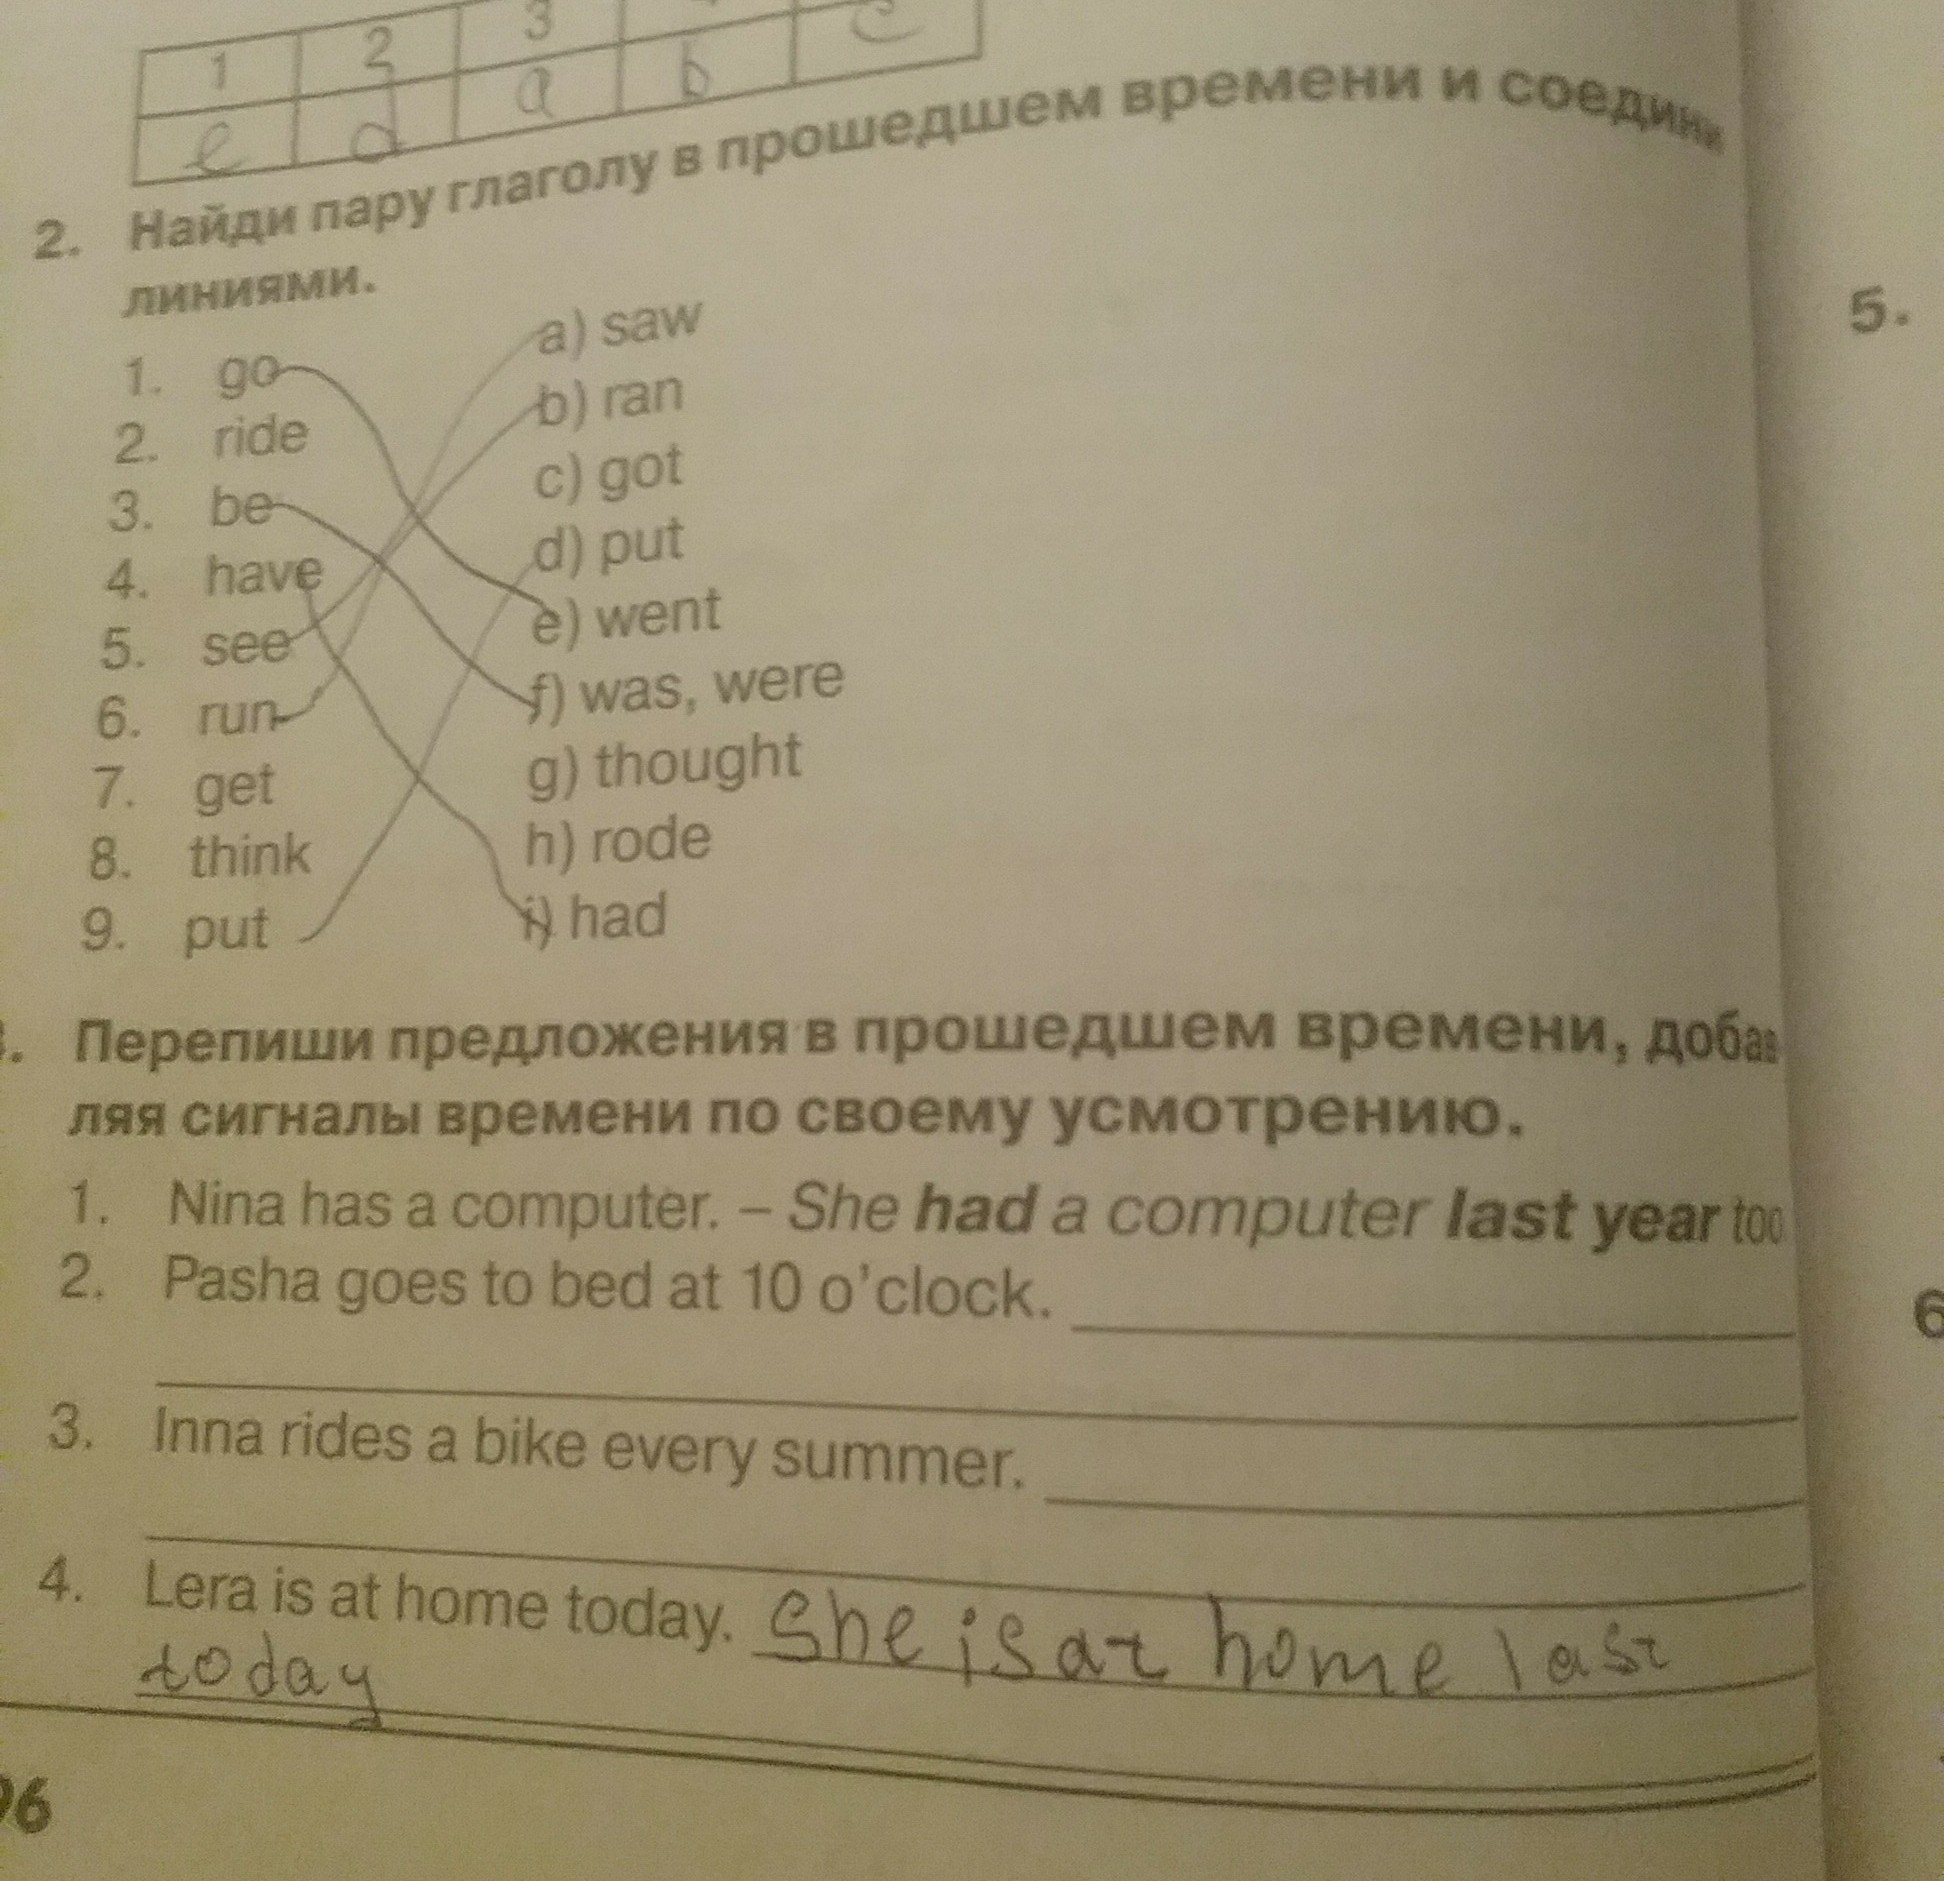 1 2 3
e d a b c
2. Найди пару глаголу в прошедшем времени и соедини
линиями.
1. go a) saw
2. ride b) ran
3. be c) got
4. have d) put
5. see e) went
6. run f) was, were
7. get g) thought
8. think h) rode
9. put i) had
. Перепиши предложения в прошедшем времени, добав
ляя сигналы времени по своему усмотрению.
1. Nina has a computer. – She had a computer last year too
2. Pasha goes to bed at 10 o'clock.
3. Inna rides a bike every summer.
4. Lera is at home today. She is at home last
today
96
5.
6